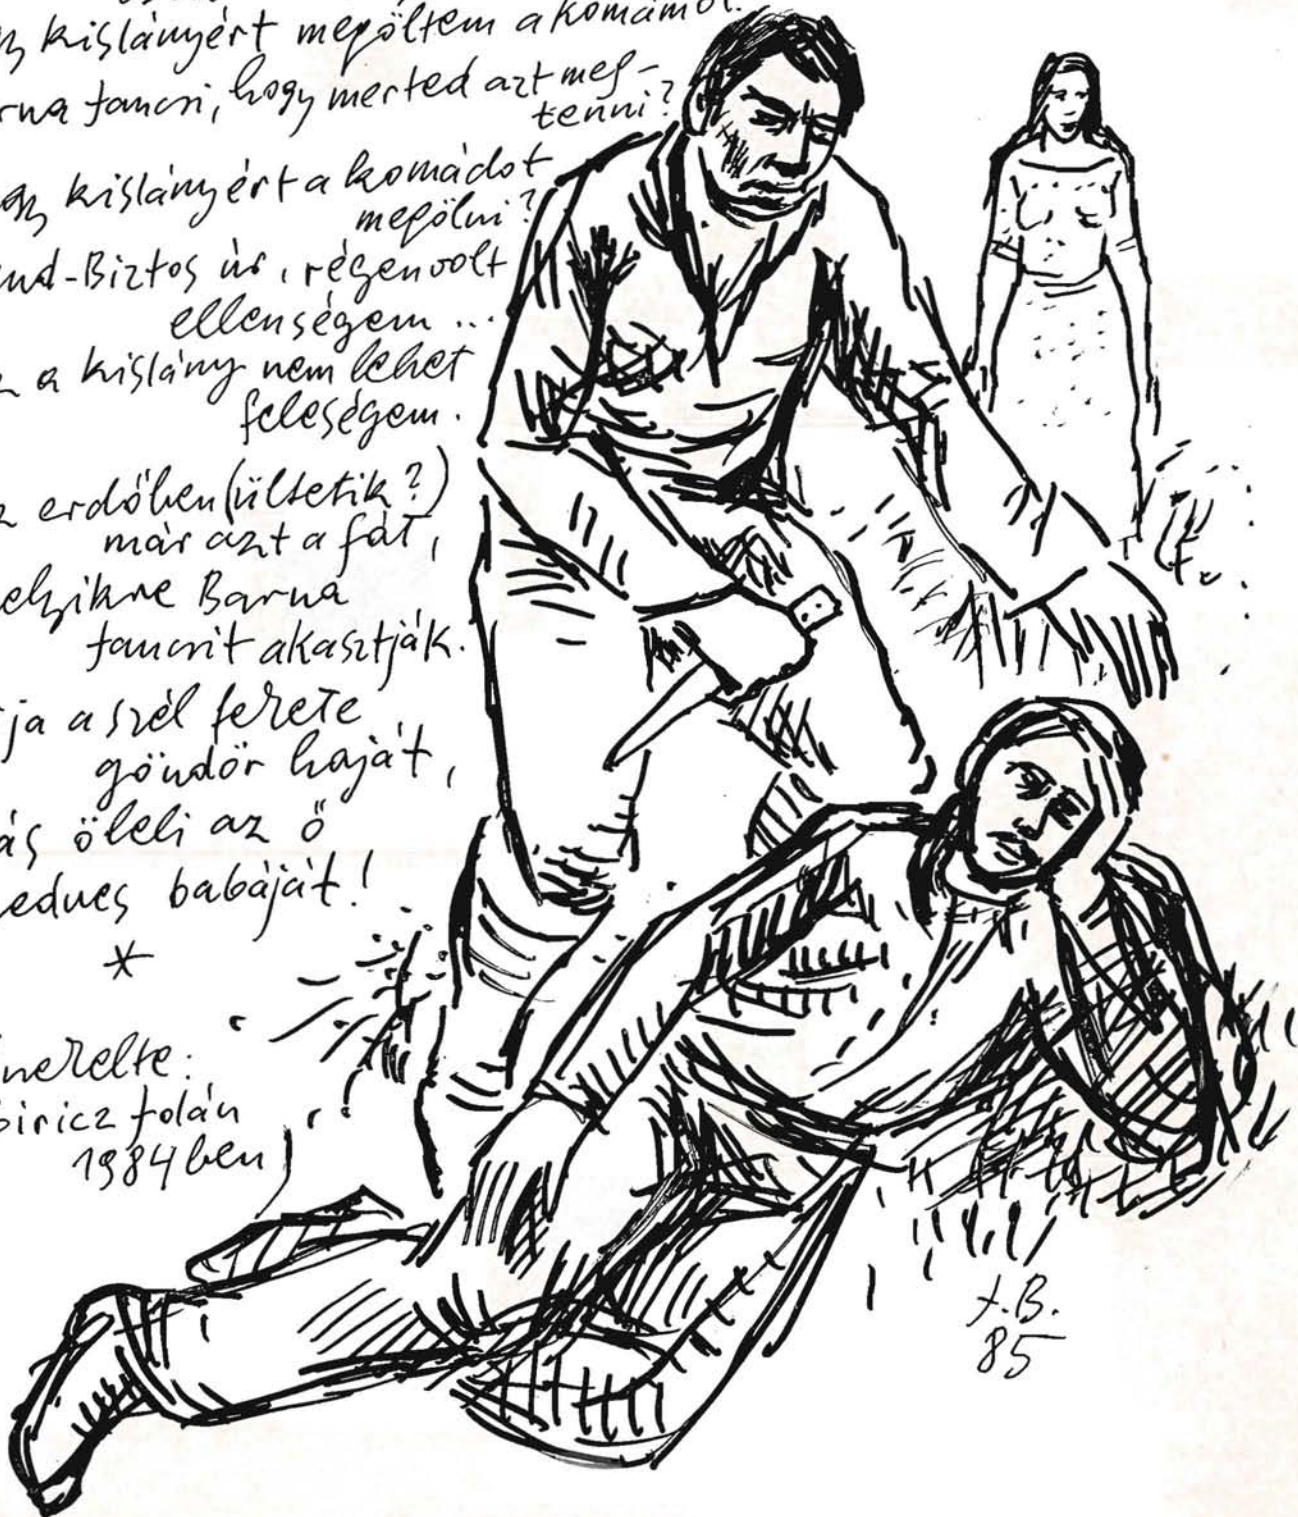 kislányért megöltem a komámot.
Jancsi, hogy merted azt meg-
tenni?
kislányért a komádot
megölni?
-Biztos úr, régen volt
ellenségem ...
a kislány nem lehet
feleségem.
erdőben (ültetik?)
már azt a fát,
Barna
Jancsit akasztják.
a szél fekete
göndör haját,
öleli az ő
babáját!
*
Jolán
1984 ben
J.B.
85